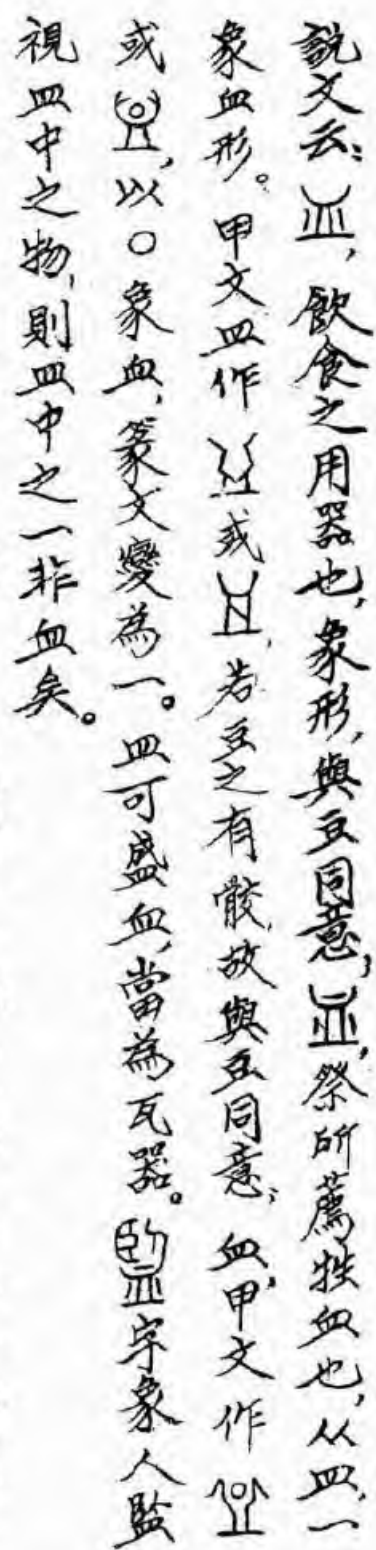 說文云：皿，飲食之用器也，象形，與豆同意，血，祭所薦牲血也，从皿，一
象血形。甲文皿作或，若豆之有骰，故與豆同意；血，甲文作
或，以○象血，篆文變為一。皿可盛血，當為瓦器。監字象人監
視皿中之物，則皿中之一非血矣。